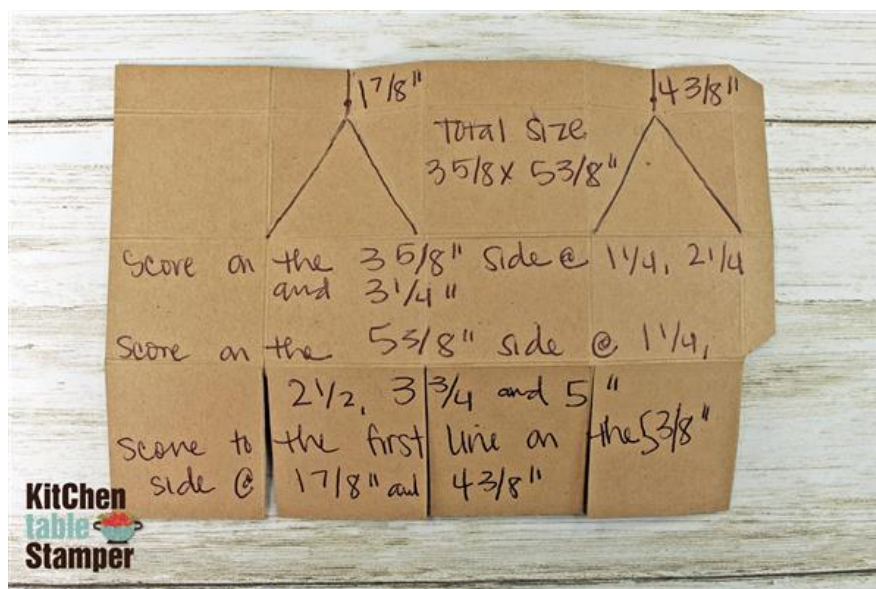 17/8"
43/8"
Total Size
35/8 x 53/8"
Score on the 35/8" side @ 1 1/4, 2 1/4
and 3 1/4"
Score on the 53/8" side @ 1 1/4,
2 1/2, 3 3/4 and 5 "
Score to the first line on the 53/8"
side @ 17/8" and 43/8"
KitChen
table
Stamper